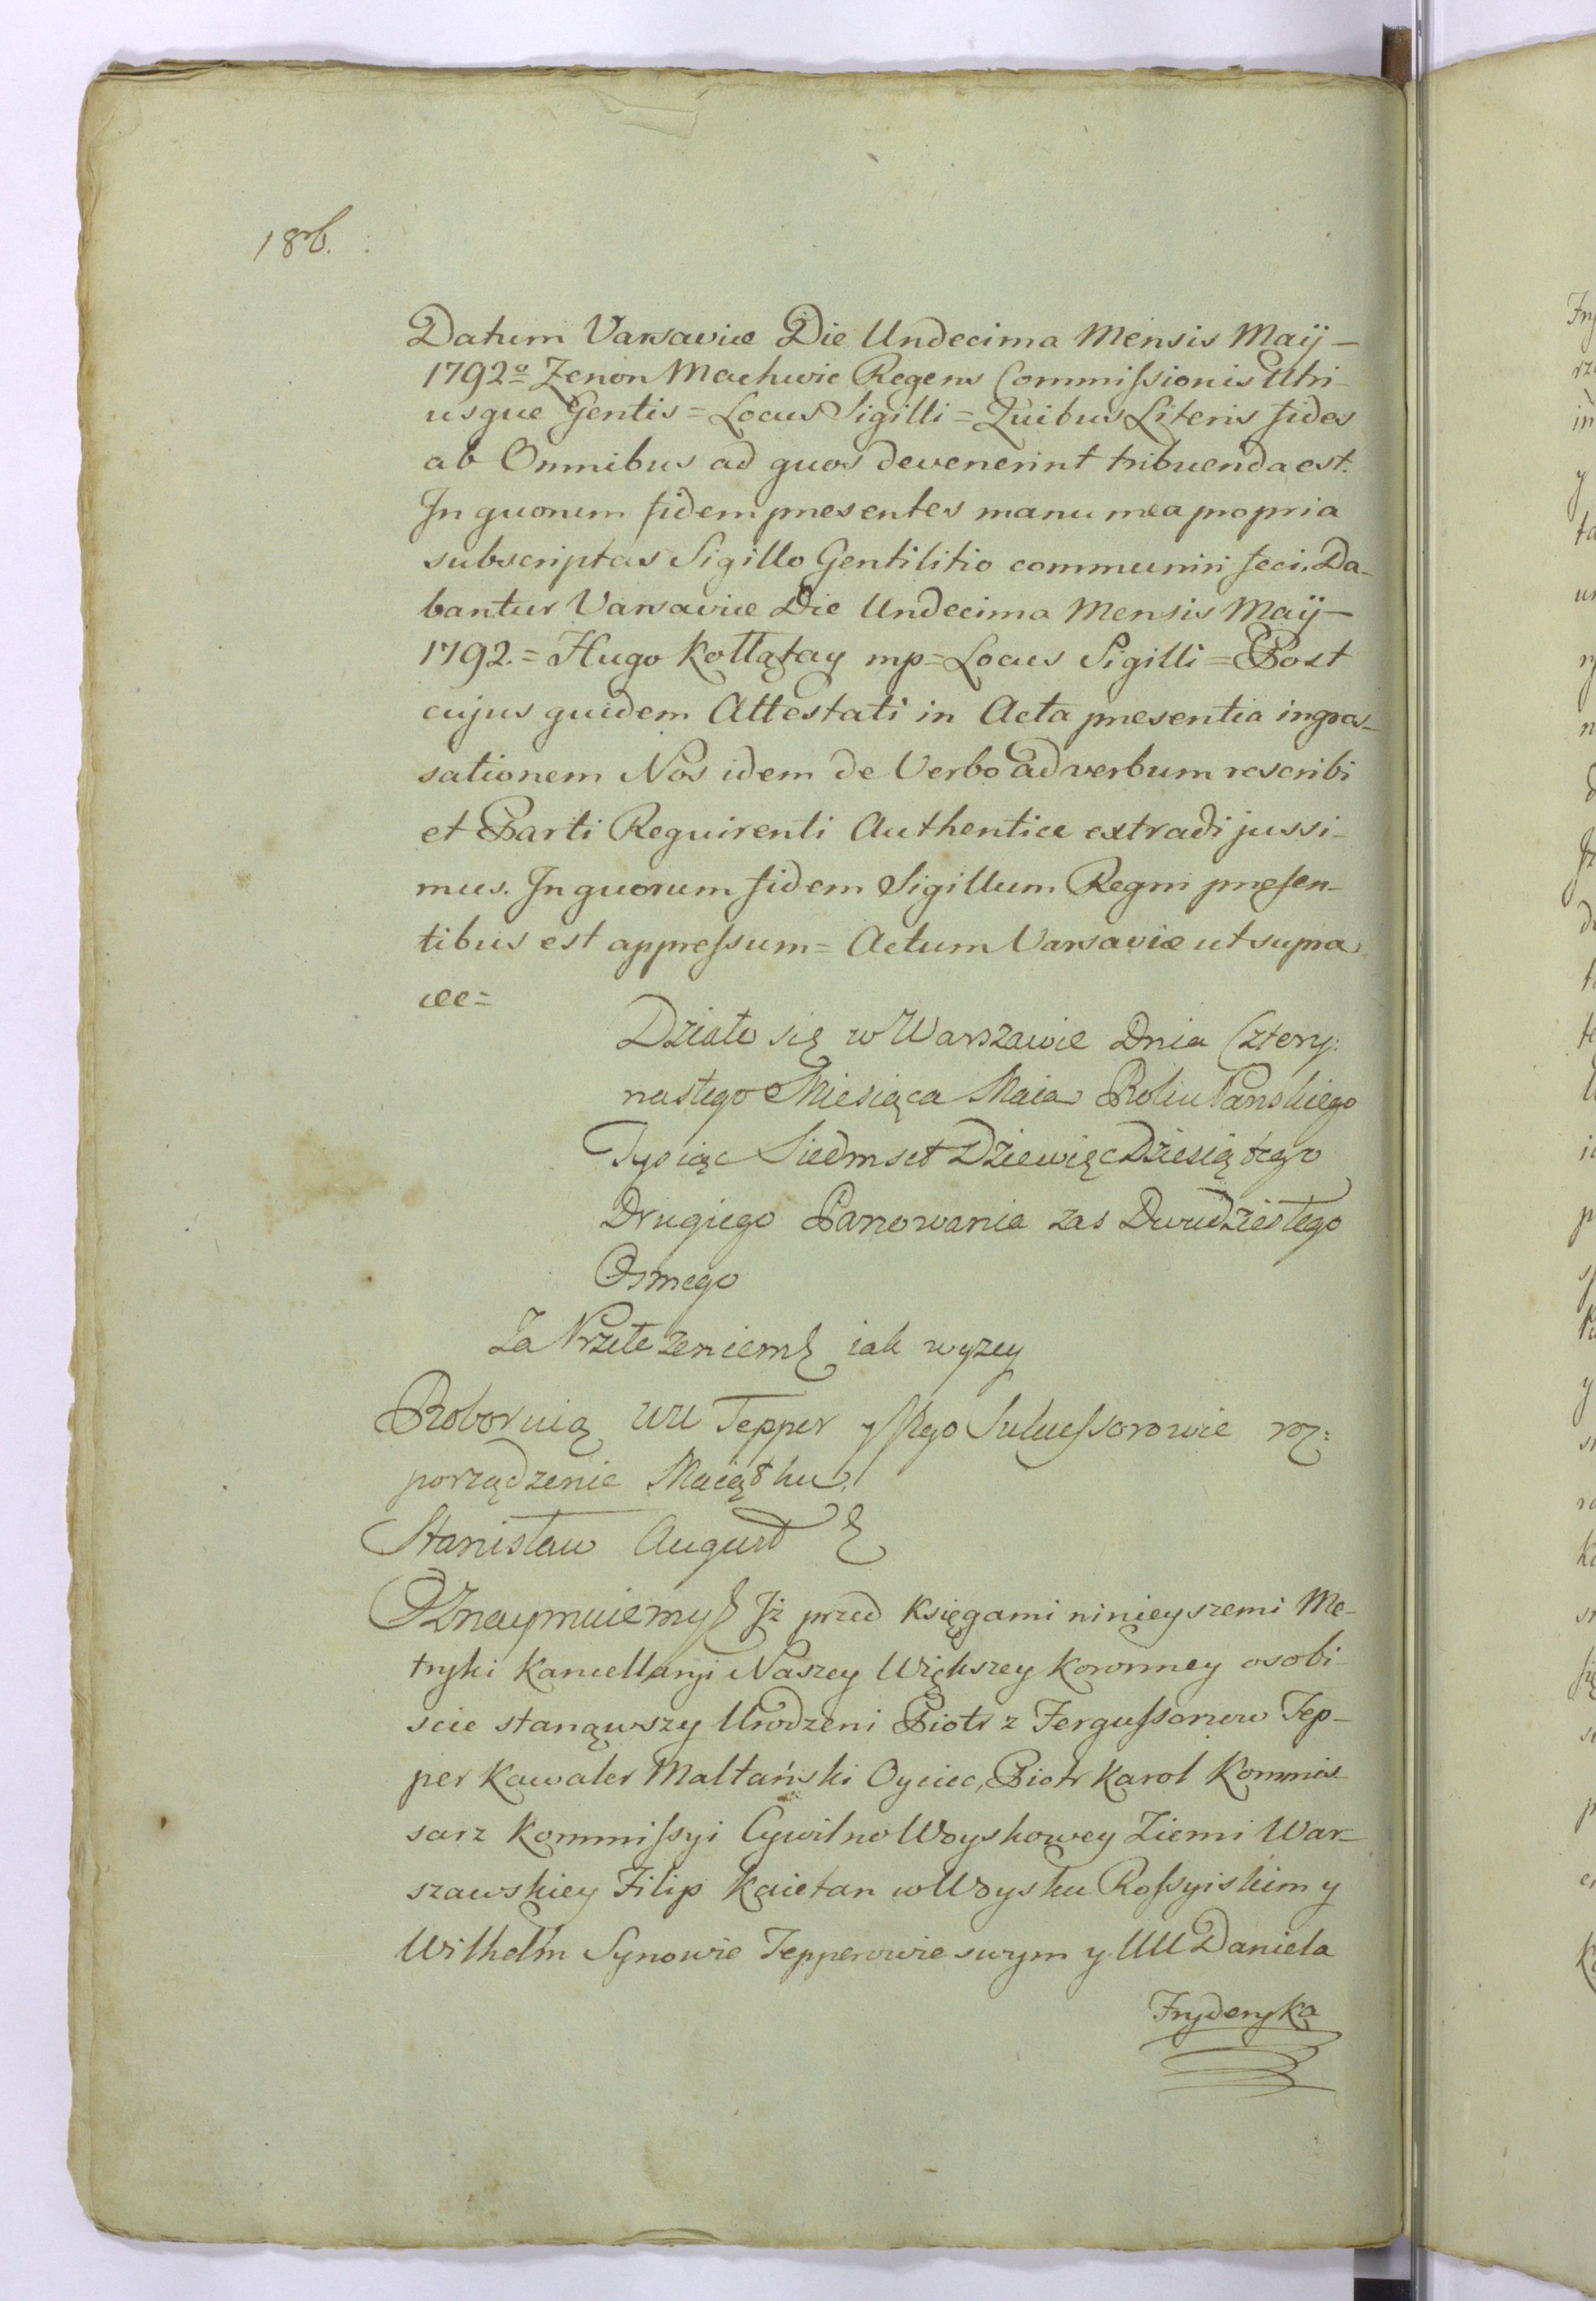 186.
Datum Varsaviæ Die Undecima Mensis Maij —
1792º Zenon Machwic Regens Commiſsionis Utri-
usque Gentis = Locus Sigilli = Quibus Literis fides
ab Omnibus ad quos devenerint tribuenda est.
In quorum fidem presentes manu mea propria
subscriptas Sigillo Gentilitio communiri feci. Da-
bantur Varsaviæ Die Undecima Mensis Maij —
1792. = Hugo Kołłątay mp = Locus Sigilli = Post
cujus quidem Attestati in Acta presentia ingros-
sationem Nos idem de Verbo ad verbum rescribi
et Parti Requirenti Authentice extradi jussi-
mus. In quorum fidem Sigillum Regni preſen-
tibus est appreſsum = Actum Varsaviæ ut supra
Działo się w Warszawie Dnia Cztery:
nastego Miesiąca Maia Roku Panskiego
Tysiąc Siedmset Dziewięcdziesiątego
Drugiego Panowania zas Dwudziestego
Osmego
Za Przełożeniem iak wyzey
Roboruią UU Tepper y Jego Sukceſsorowie roz:
porządzenie Maiątku
Stanisław August
Oznaymuiemy Jż przed Księgami ninieyszemi Me-
tryki Kancellaryi Naszey Większey Koronney osobi-
scie stanąwszy Urodzeni Piotr z Ferguſsonow Tep-
per Kawaler Maltański Oyciec, Piotr Karol Kommis-
sarz Kommiſsyi Cywilno Woyskowey Ziemi War-
szawskiey Filip Kaietan w Woysku Roſsyiskim y
Wilhelm Synowie Tepperowie swym y UU Daniela
Fryderyka